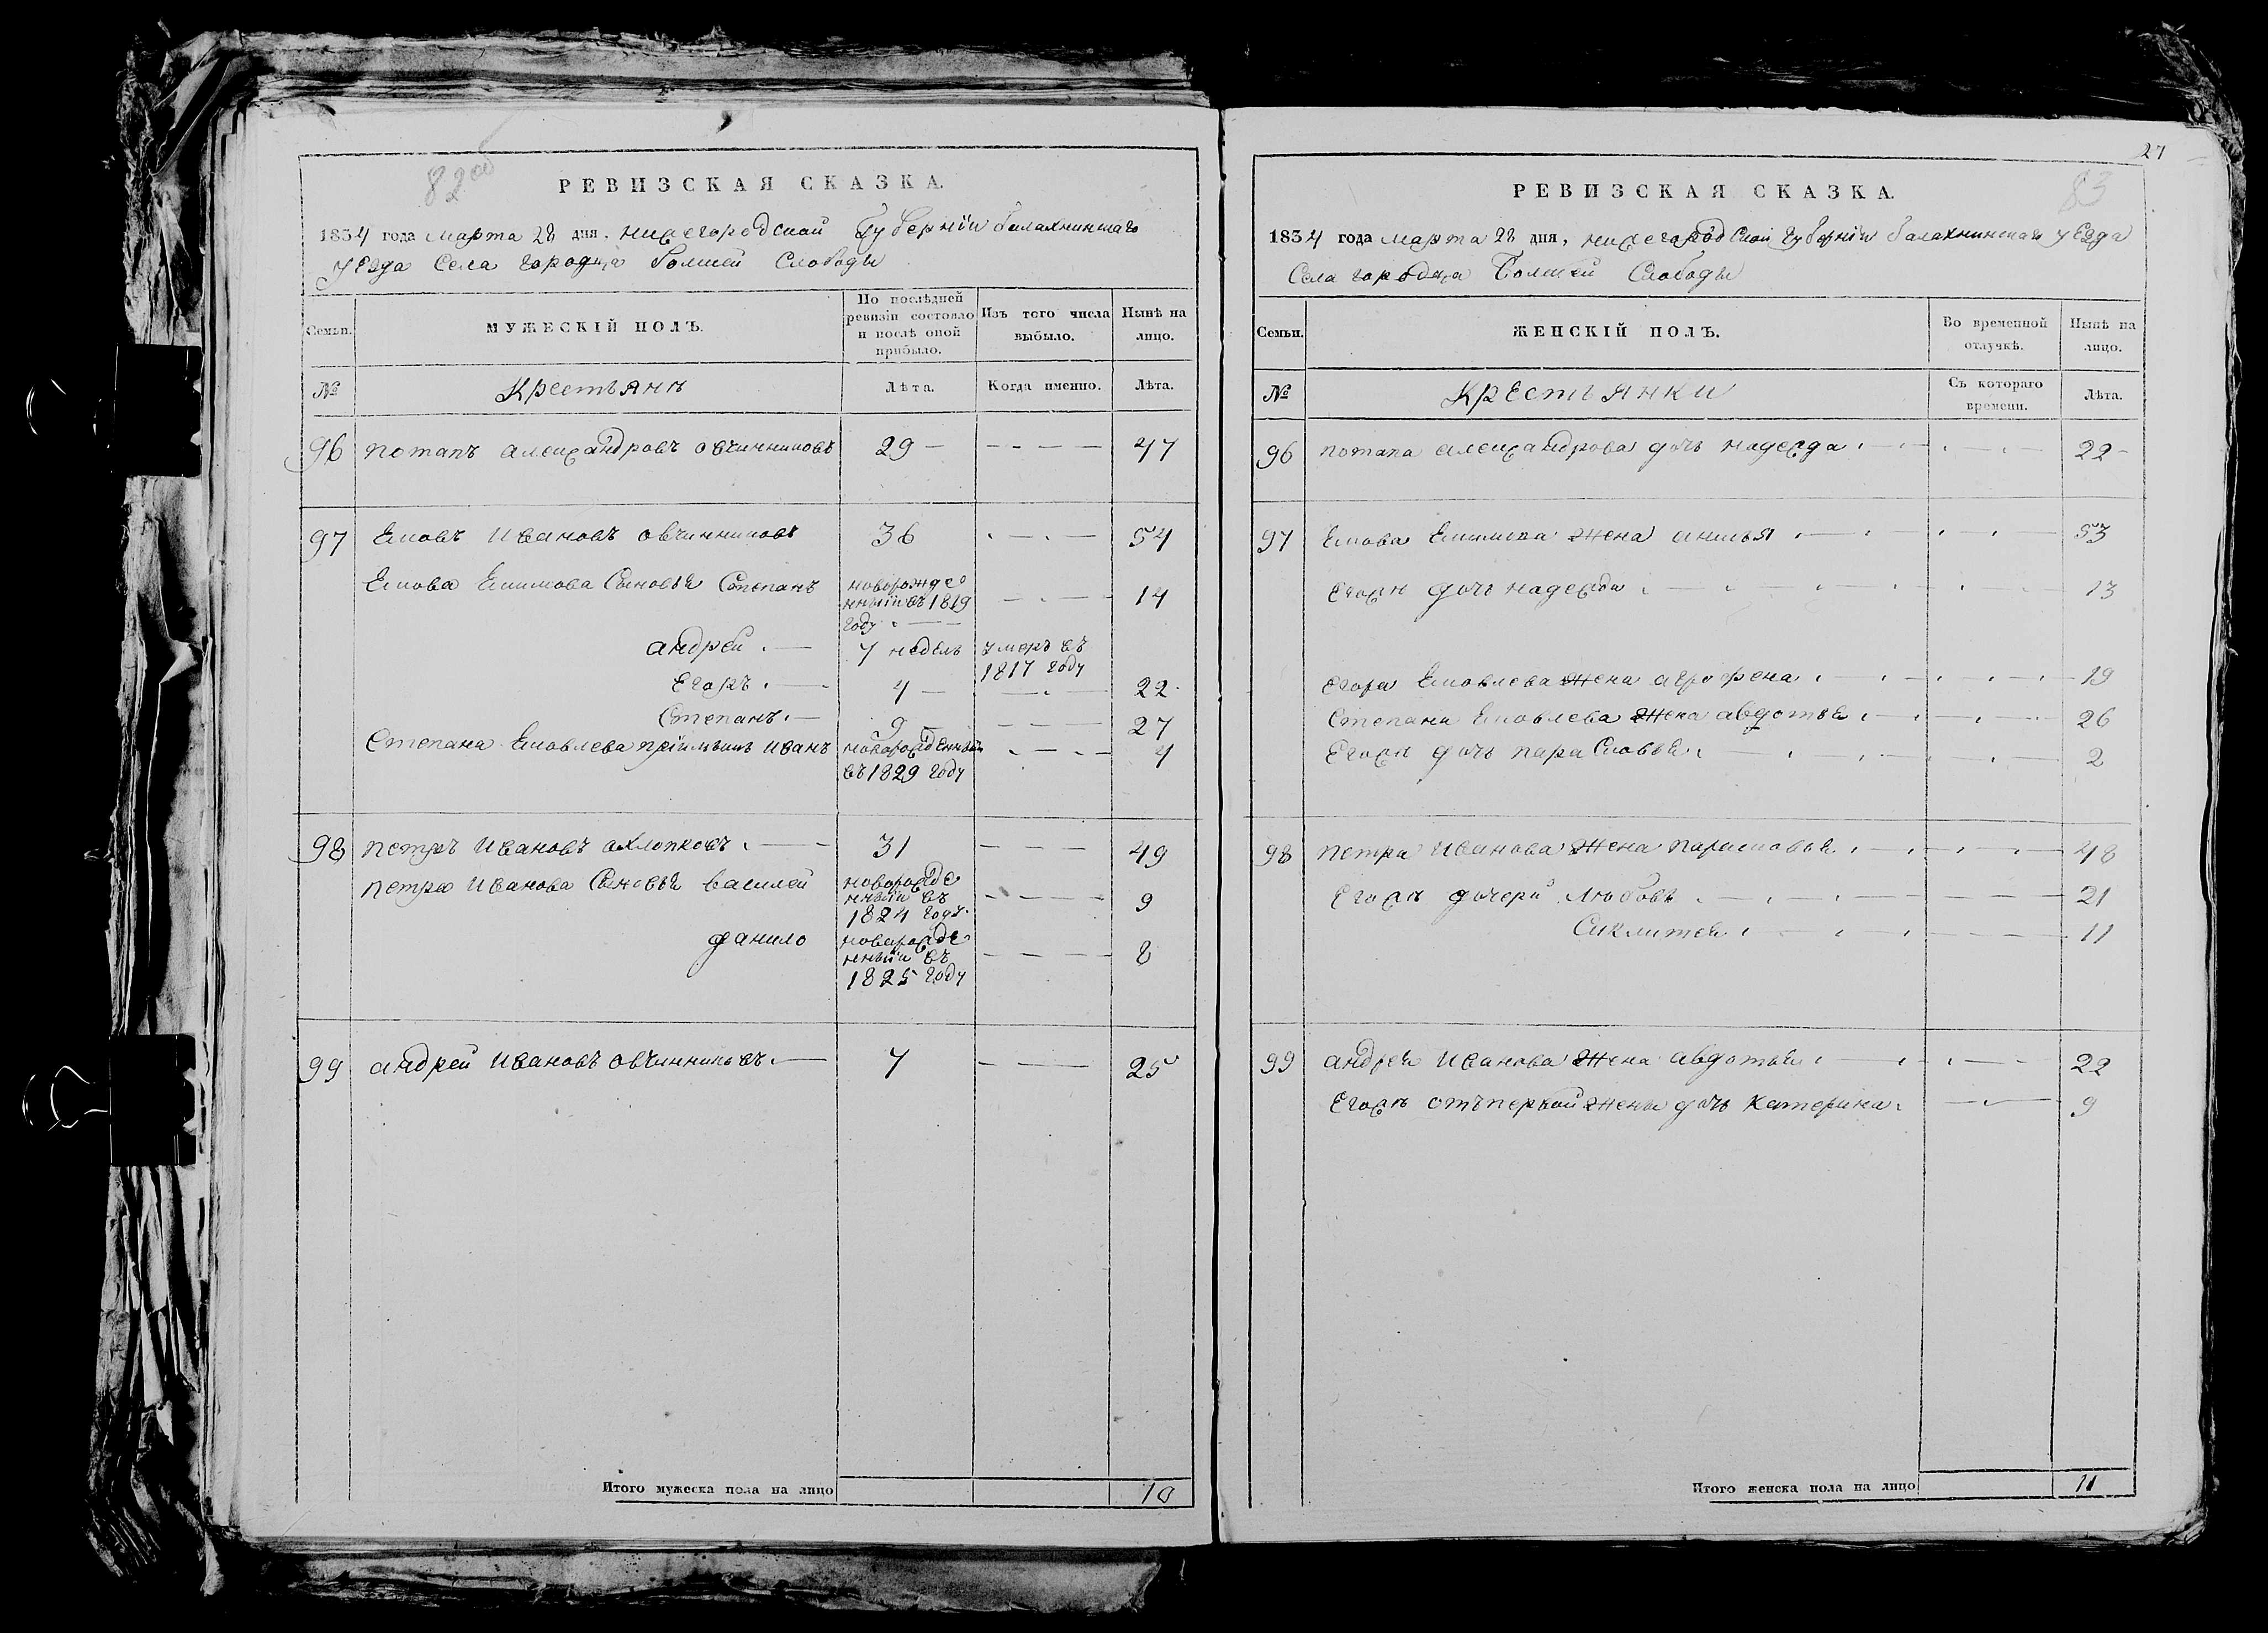 82об
РЕВИЗСКАЯ СКАЗКА.
1834 года марта 28 дня. нижегородской губернїи балахнинскаго
уезда Села городца болшей Слободы
Семьи.
МУЖЕСКІЙ ПОЛЪ.
По послѣдней ревизіи состояло и послѣ оной прибыло.
Изъ того числа выбыло.
Нынѣ на лицо.
№ Крестьянъ Лѣта. Когда именно. Лѣта.
96 потапъ александровъ овчинниковъ 29 47
97 Ековъ Ивановъ овчинниковъ 36 54
Екова Сыновья Степанъ новорожде нный въ 1819 году 14
андрей 7 недель умеръ въ 1817 году
Егоръ 4 22
Степанъ 9 27
Степана Ековлева прїимышъ иванъ новорожденный въ 1829 году 4
98 петръ Ивановъ охлопковъ 31 49
петра Иванова Сыновья василей новорожде нный въ 1824 году 9
данило новорожде нный въ 1825 году 8
99 андрей Ивановъ овчинниковъ 7 25
Итого мужеска пола на лицо 10
27
83
РЕВИЗСКАЯ СКАЗКА.
1834 года марта 28 дня, нижегородской губернїи балахнинскаго уезда
Села городца болшей Слободы
Семьи.
ЖЕНСКІЙ ПОЛЪ.
Во временной отлучкѣ.
Нынѣ на лицо.
№ Крестьянки Съ котораго времени. Лѣта.
96 потапа александрова дочь надежда 22
97 Екова жена 53
Егожъ дочь надежда 13
Егора Ековлева жена агрофена 19
Степана Ековлева жена авдотья 26
Егожъ дочь парасковья 2
98 петра Иванова жена парасковья 48
Егожъ дочери Любовь 21
Сиклитея 11
99 андрея Иванова жена авдотья 22
Егожъ отъ первой жены дочь катерина 9
Итого женска пола на лицо 11